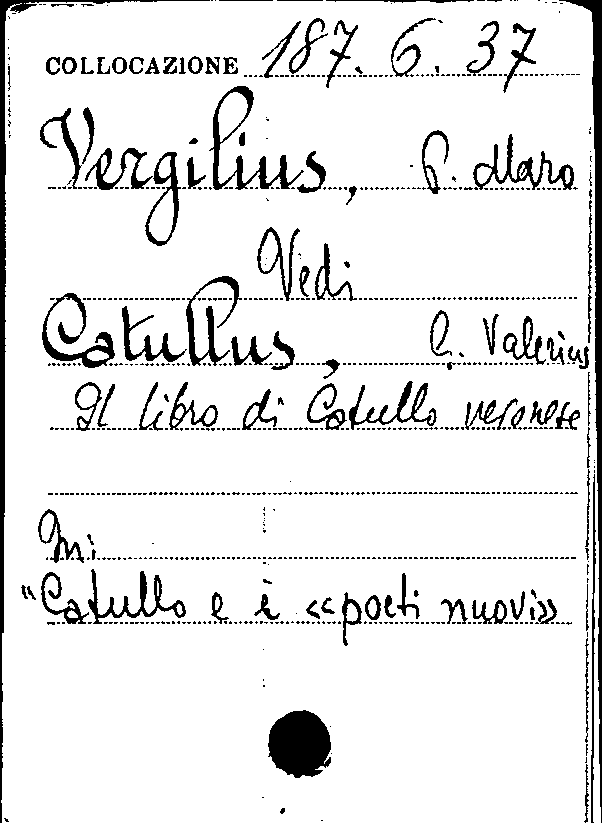 COLLOCAZIONE 187. 6. 37
Vergilius, P. Maro
Vedi
Catullus, C. Valerius
Il libro di Catullo veronese
In:
"Catullo e i «poeti nuovi»